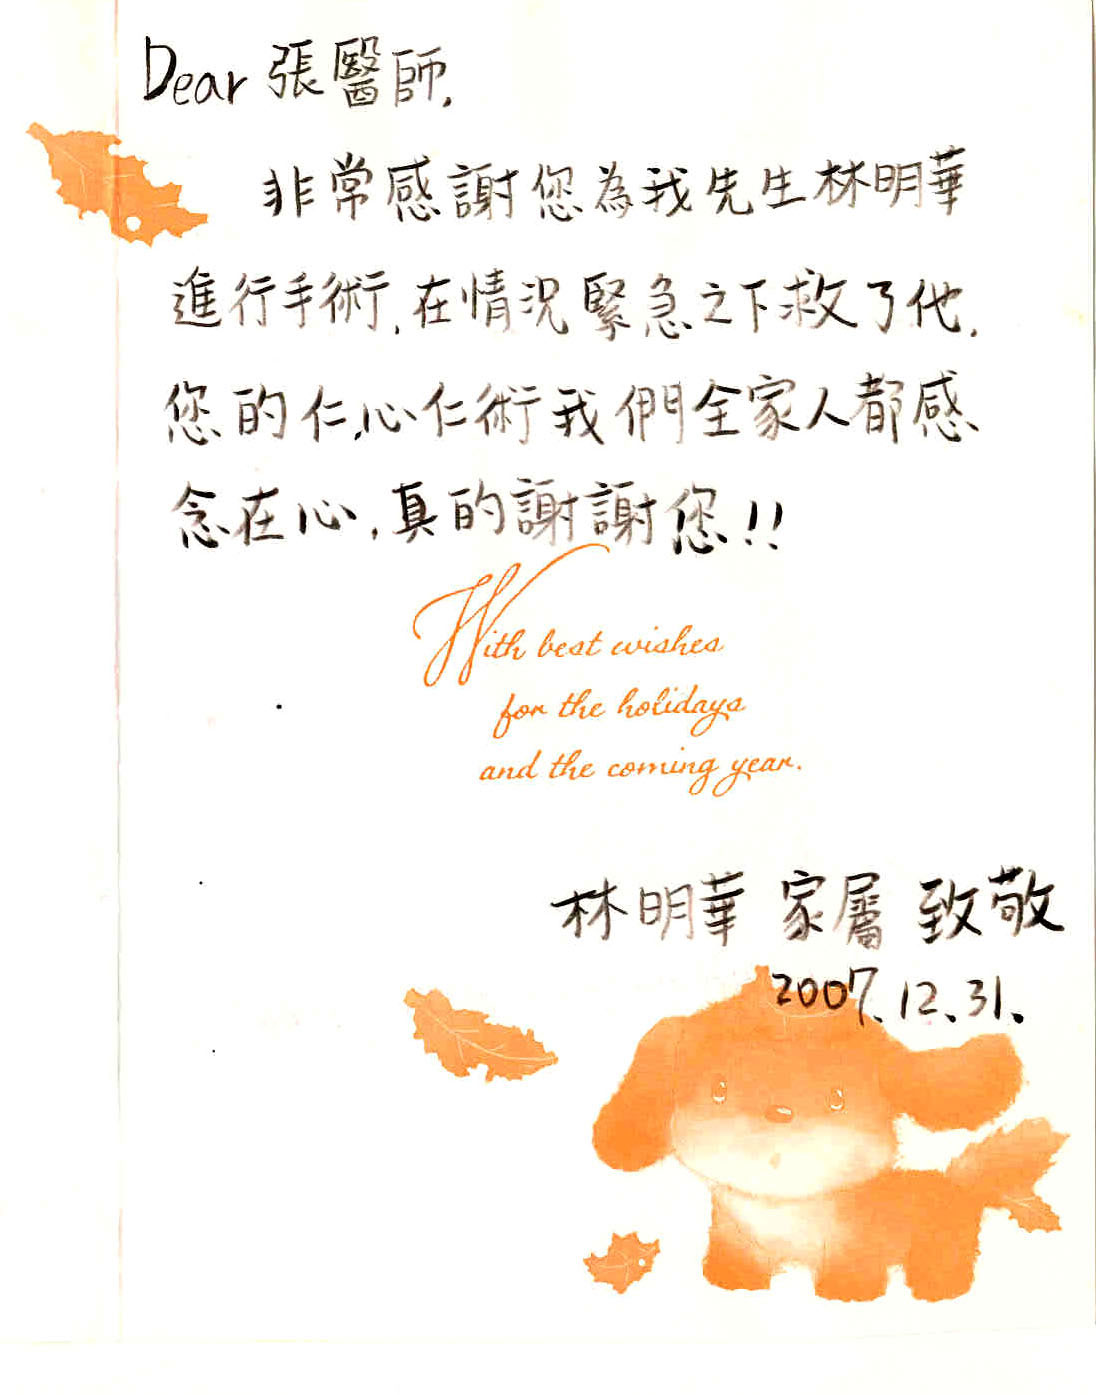 Dear 張醫師.
非常感謝您為我先生林明華
進行手術,在情況緊急之下救了他.
您的仁心仁術我們全家人都感
念在心,真的謝謝您!!
With best wishes
for the holidays
and the coming year.
林明華 家屬 致敬
2007.12.31.